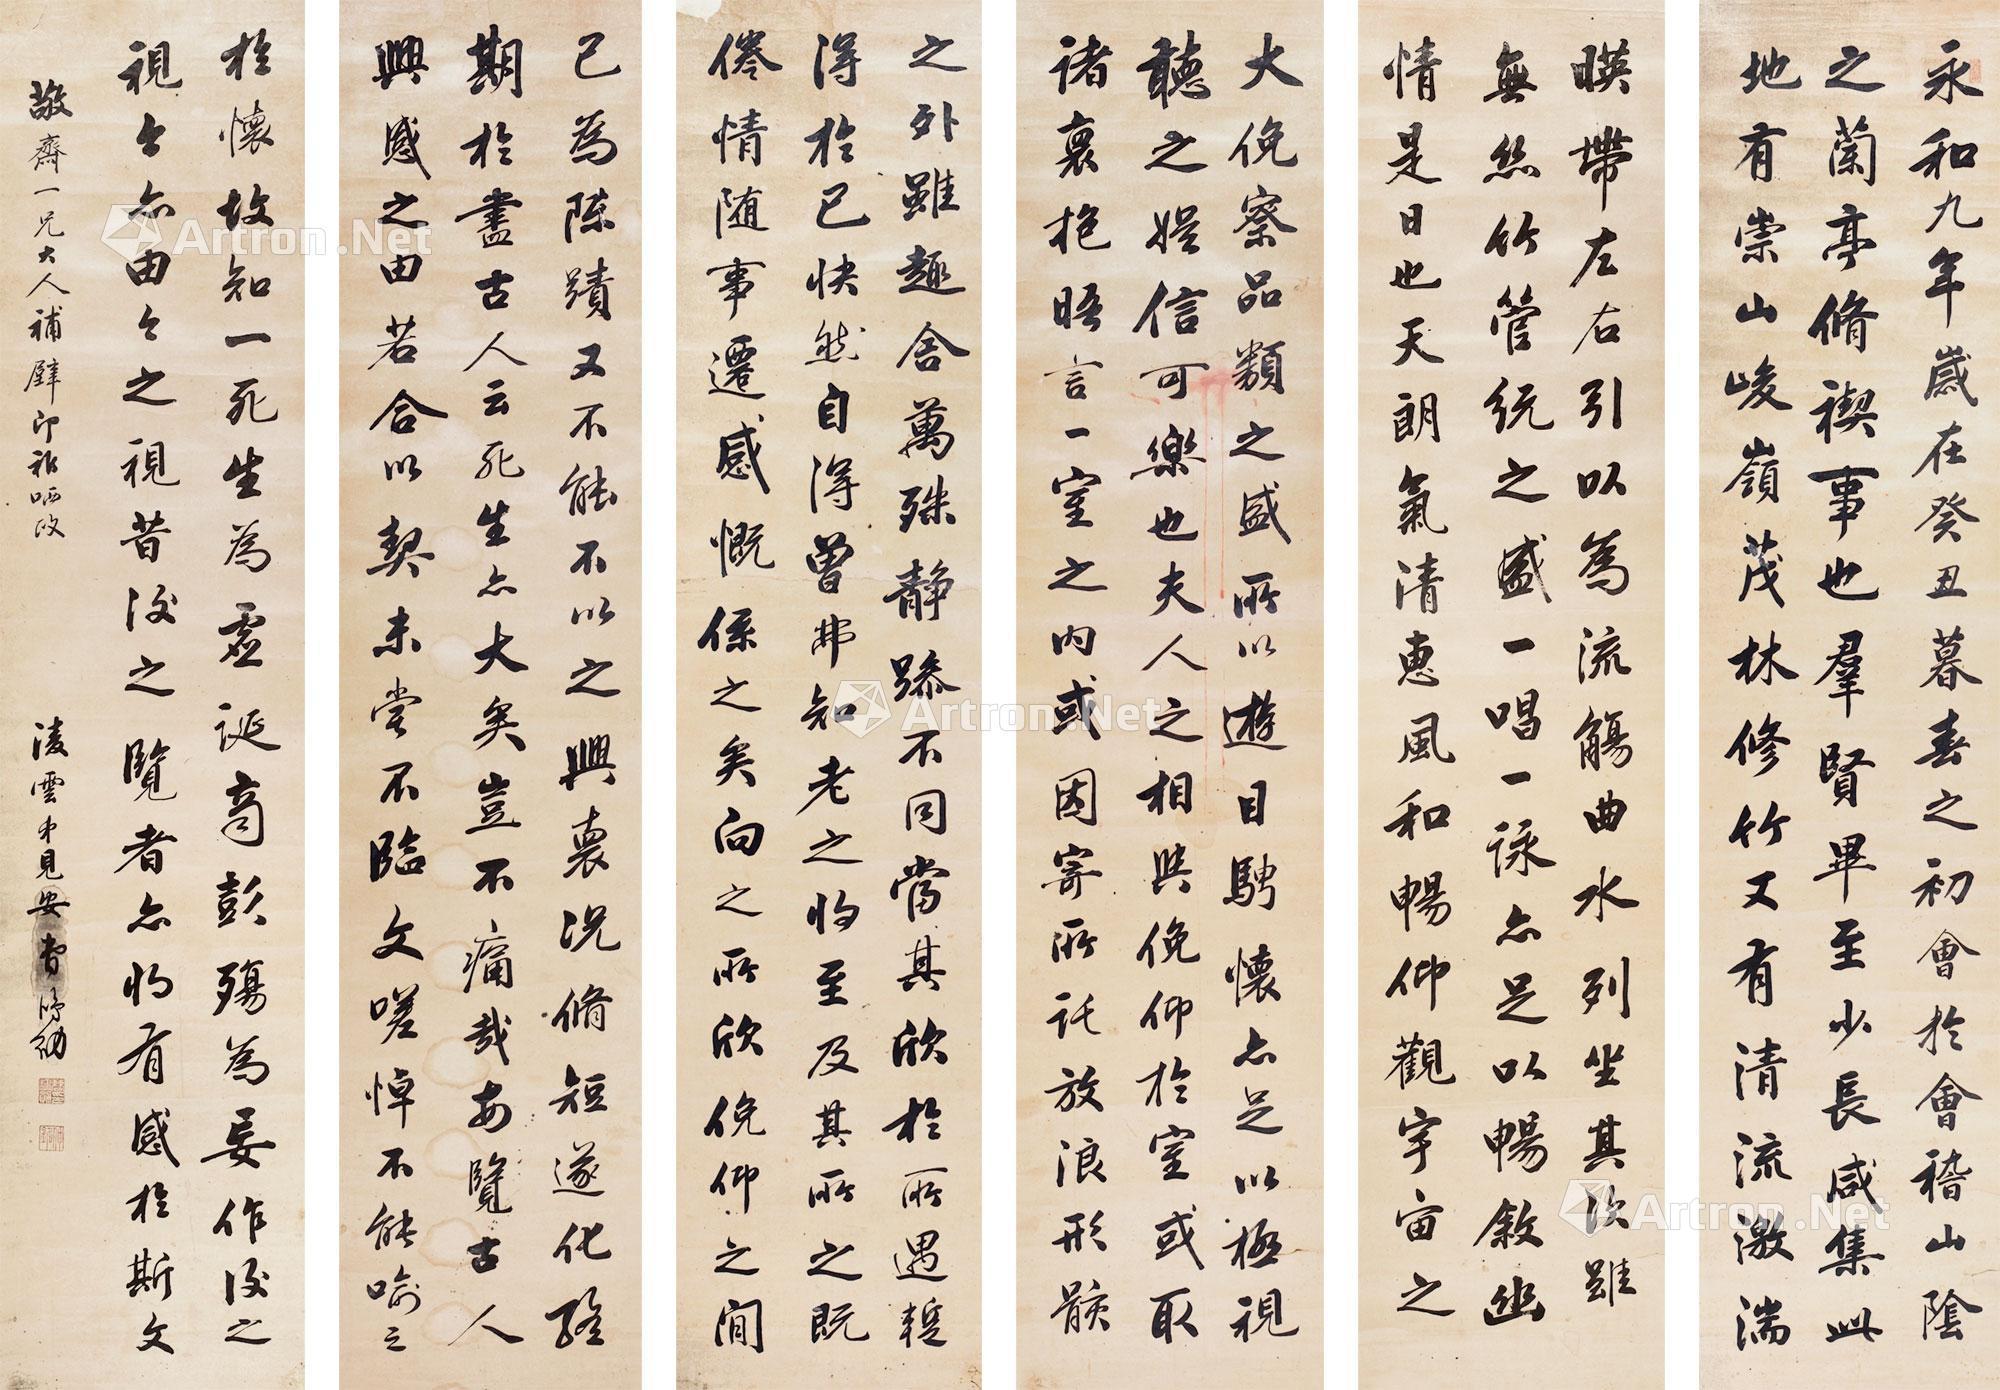 永和九年歲在癸丑暮春之初會於會稽山陰
之蘭亭脩禊事也羣賢畢至少長咸集此
地有崇山峻嶺茂林修竹又有清流激湍
暎帶左右引以為流觴曲水列坐其次雖
無絲竹管絃之盛一唱一詠亦足以暢敘幽
情是日也天朗氣清惠風和暢仰觀宇宙之
大俛察品類之盛所以遊目騁懷亦足以極視
聽之娛信可樂也夫人之相與俛仰於室或取
諸裏抱晤言一室之內或因寄所託放浪形骸
之外雖趣舍萬殊靜躁不同當其欣於所遇蹔
得於己快然自得曾弗知老之將至及其所之既
倦情隨事遷感慨係之矣向之所欣俛仰之間
已為陳蹟又不能不以之興裏況脩短遂化終
期於盡古人云死生亦大矣豈不痛哉每覽古人
興感之由若合以契未嘗不臨文嗟悼不能喻之
於懷故知一死生為虛誕齊彭殤為妄作後之
視今亦由今之視昔後之覽者亦將有感於斯文
敬齋一兄大人補壁即祈哂政
凌雲弟見安曹鴻勛
Artron.Net
Artron.Net
Artron.Net